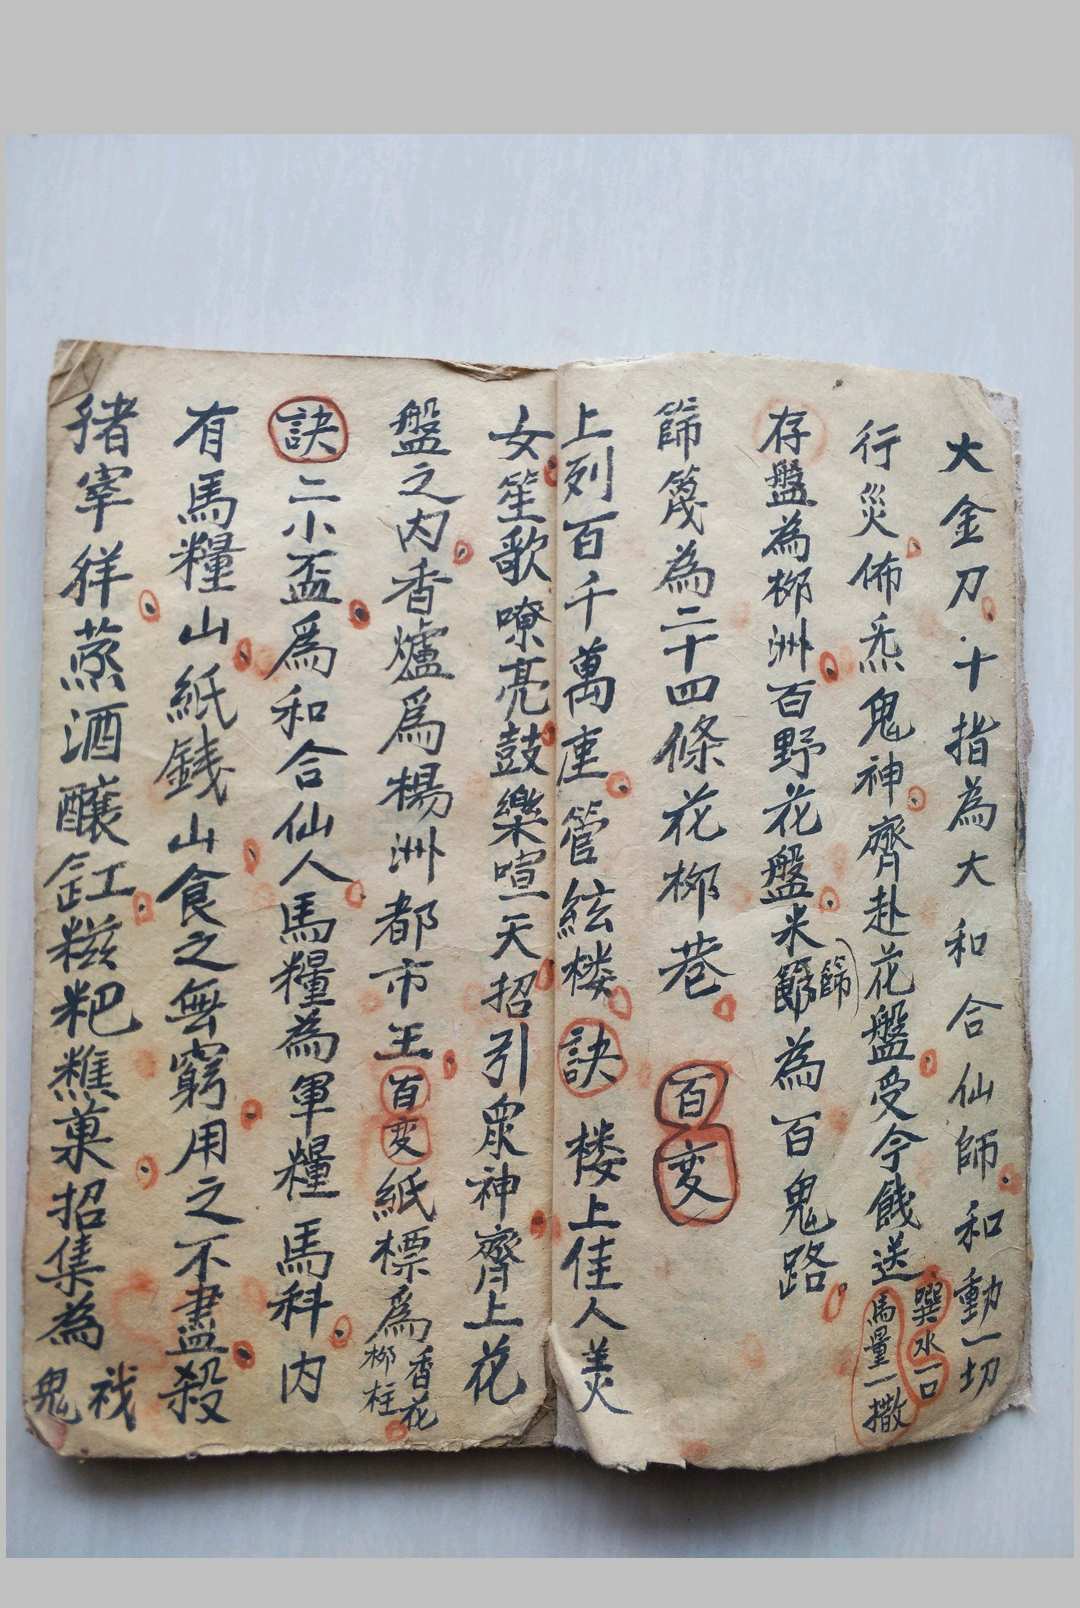 大金刀十指為大和合仙師和動一切
行災佈炁鬼神齊赴花盤受今餞送
噀水一口
馬量一撒
存盤為柳洲百野花盤米篩為百鬼路
篩
篩篾為二十四條花柳巷百変
上列百千萬座管絃楼訣楼上佳人美
女笙歌嘹亮鼓樂喧天招引眾神齊上花
盤之内香爐爲楊洲都市王百変紙標爲
香花
柳枉
訣二小盃爲和合仙人馬糧為軍糧馬料内
有馬糧山紙錢山食之無窮用之不盡殺
猪宰牂蒸酒醸缸糍粑樵菓招集為
鬼